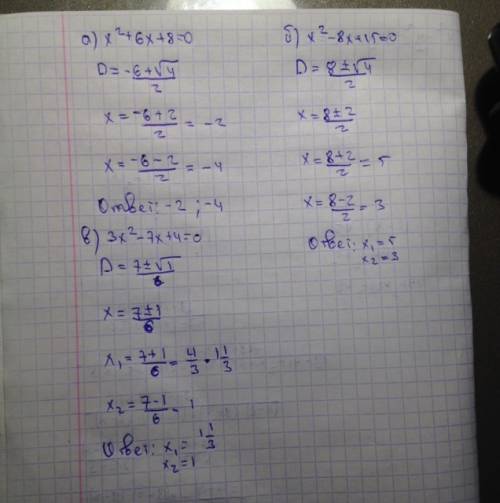 а) x²+6x+8=0
D=-6+√4/2
x=-6+2/2=-2
x=-6-2/2=-4
Ответ: -2 ; -4
б) x²-8x+15=0
D=8±√4/2
x=8±2/2
x=8+2/2=5
x=8-2/2=3
Ответ: x₁=5
x₂=3
в) 3x²-7x+4=0
D=7±√1/6
x=7±1/6
x₁=7+1/6=4/3=1 1/3
x₂=7-1/6=1
Ответ: x₁=1 1/3
x₂=1